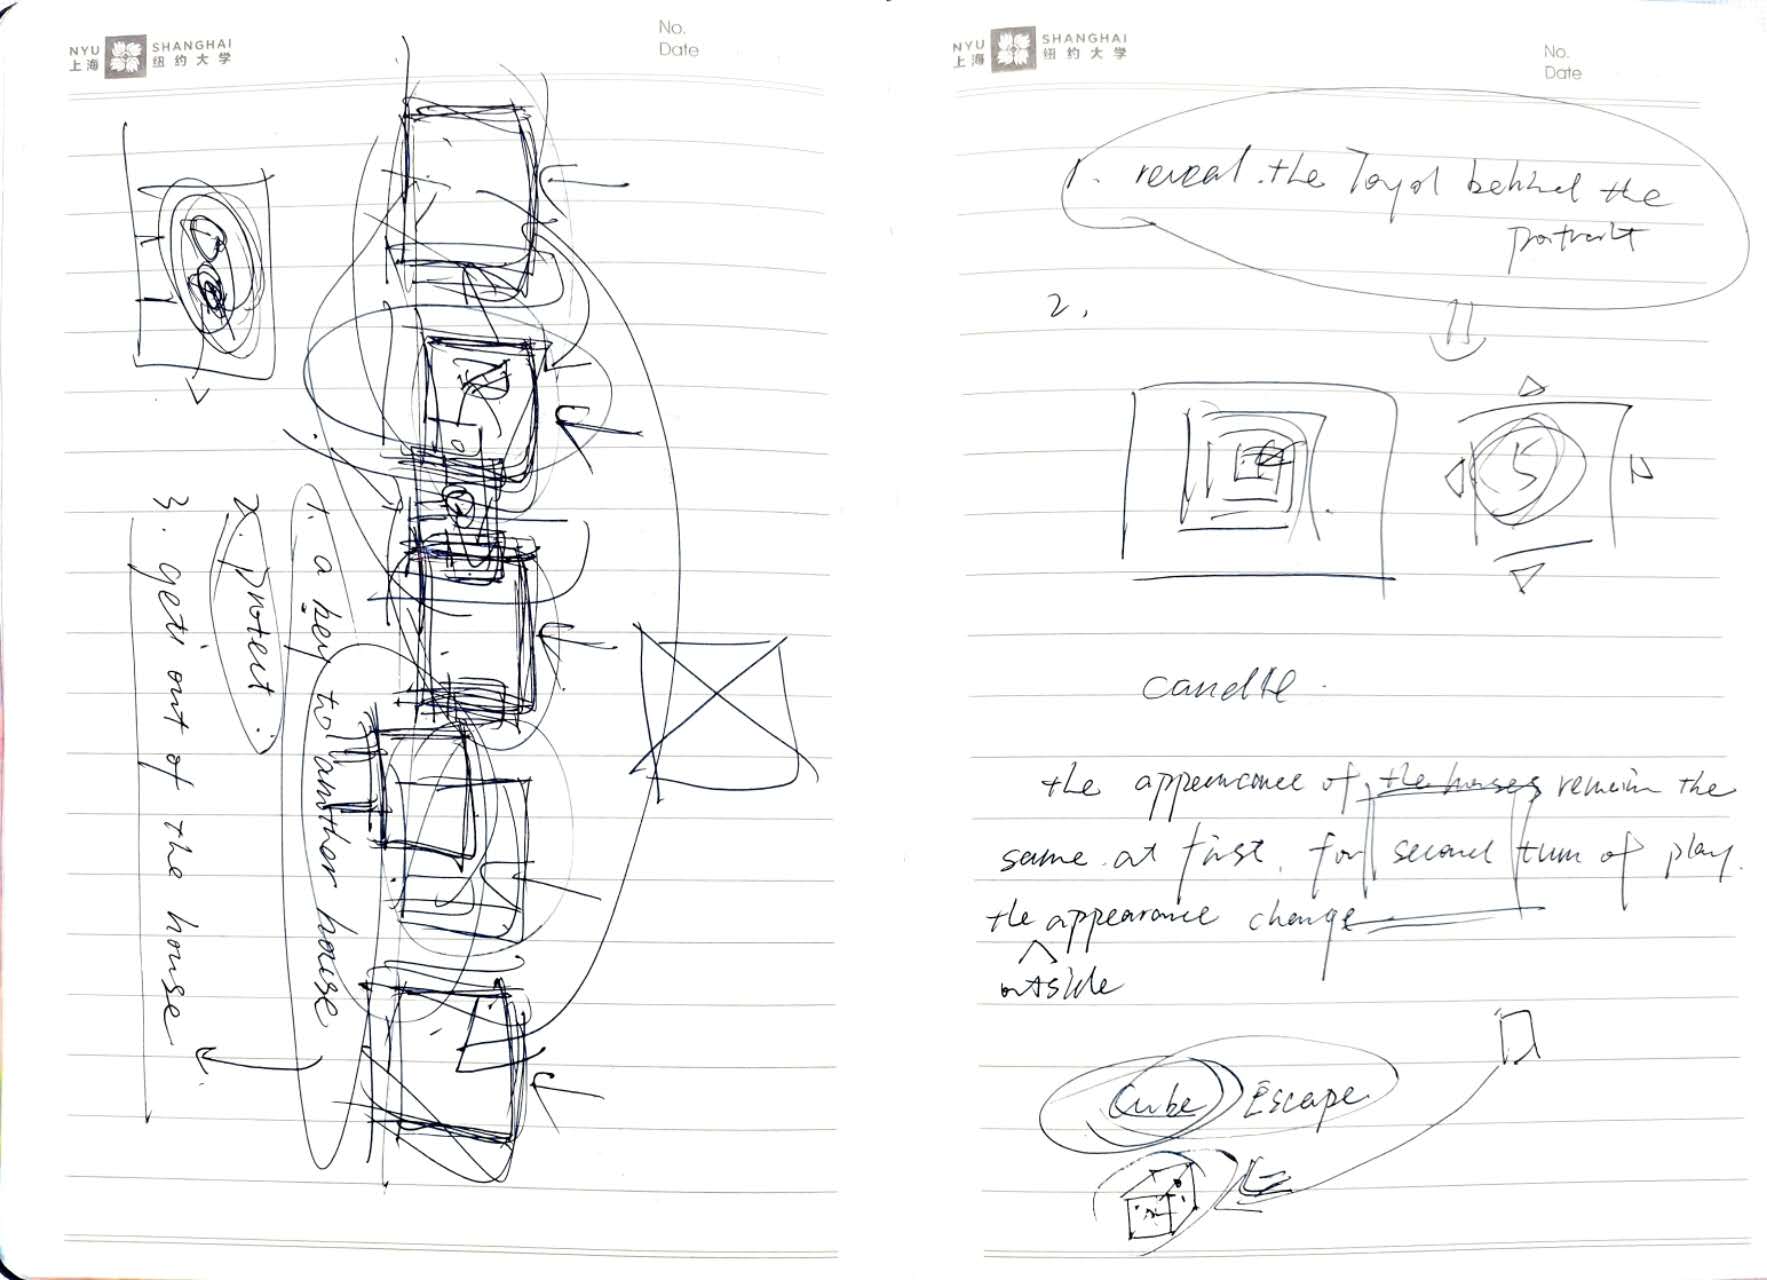 NYU SHANGHAI
上海 纽约大学
No.
Date
1. a key to another house
2. protect.
3. get out of the house
NYU SHANGHAI
上海 纽约大学
No.
Date
1. reveal the behind the
portrait
2.
5
candle.
the appearance of the houses remain the
same at first. for second turn of play.
the appearance change
outside
Cube Escape